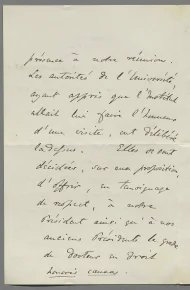 présence à notre réunion.
Les autorités de l'Université,
ayant appris que l'Institut
allait lui faire l'honneur
d'une visite, ont délibéré
Elles se sont
décidées, sur une proposition
d'offrir, en témoignage
de respect, à notre
Président ainsi qu'à nos
anciens Présidents le grade
de docteur en droit
honoris causa.